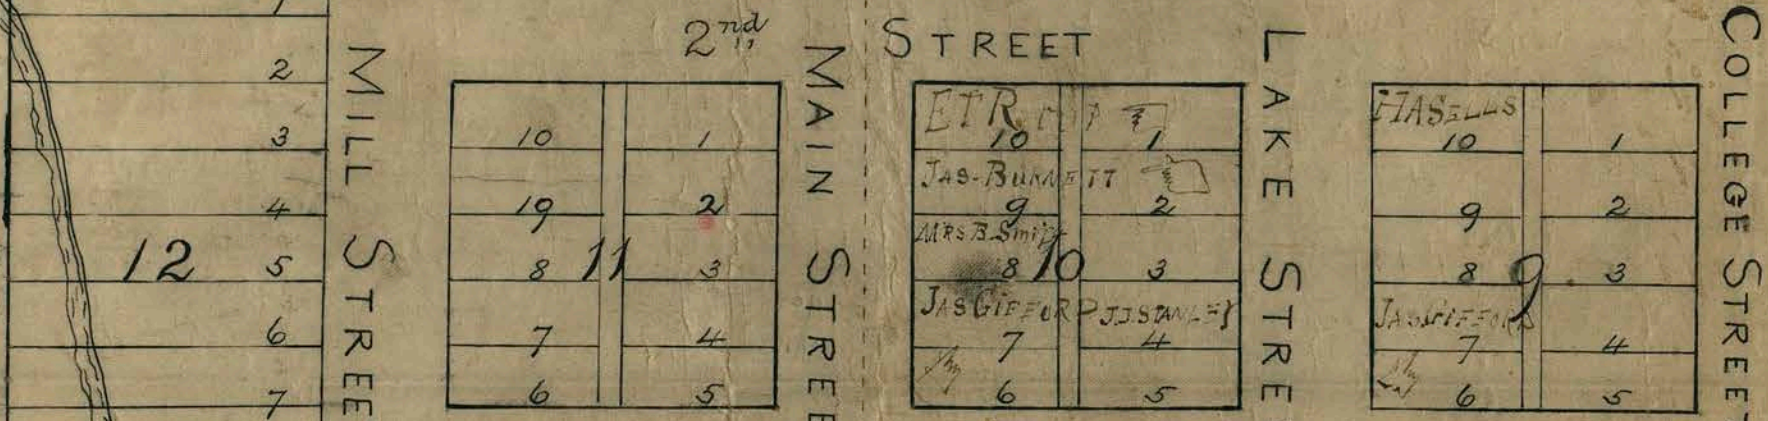 2nd STREET
1
2
3
4
12
5
6
7
MILL STREE
10 1
19 2
8 11 3
7 4
6 5
MAIN STREE
ETR
10 1
JAS-BURNETT
9 2
MRS B. Smith
8 10 3
JAS GIFFORD J.J. STANLEY
7 4
6 5
LAKE STRE
10 1
9 2
8 9 3
JAS GIFFORD
7 4
6 5
COLLEGE STREET